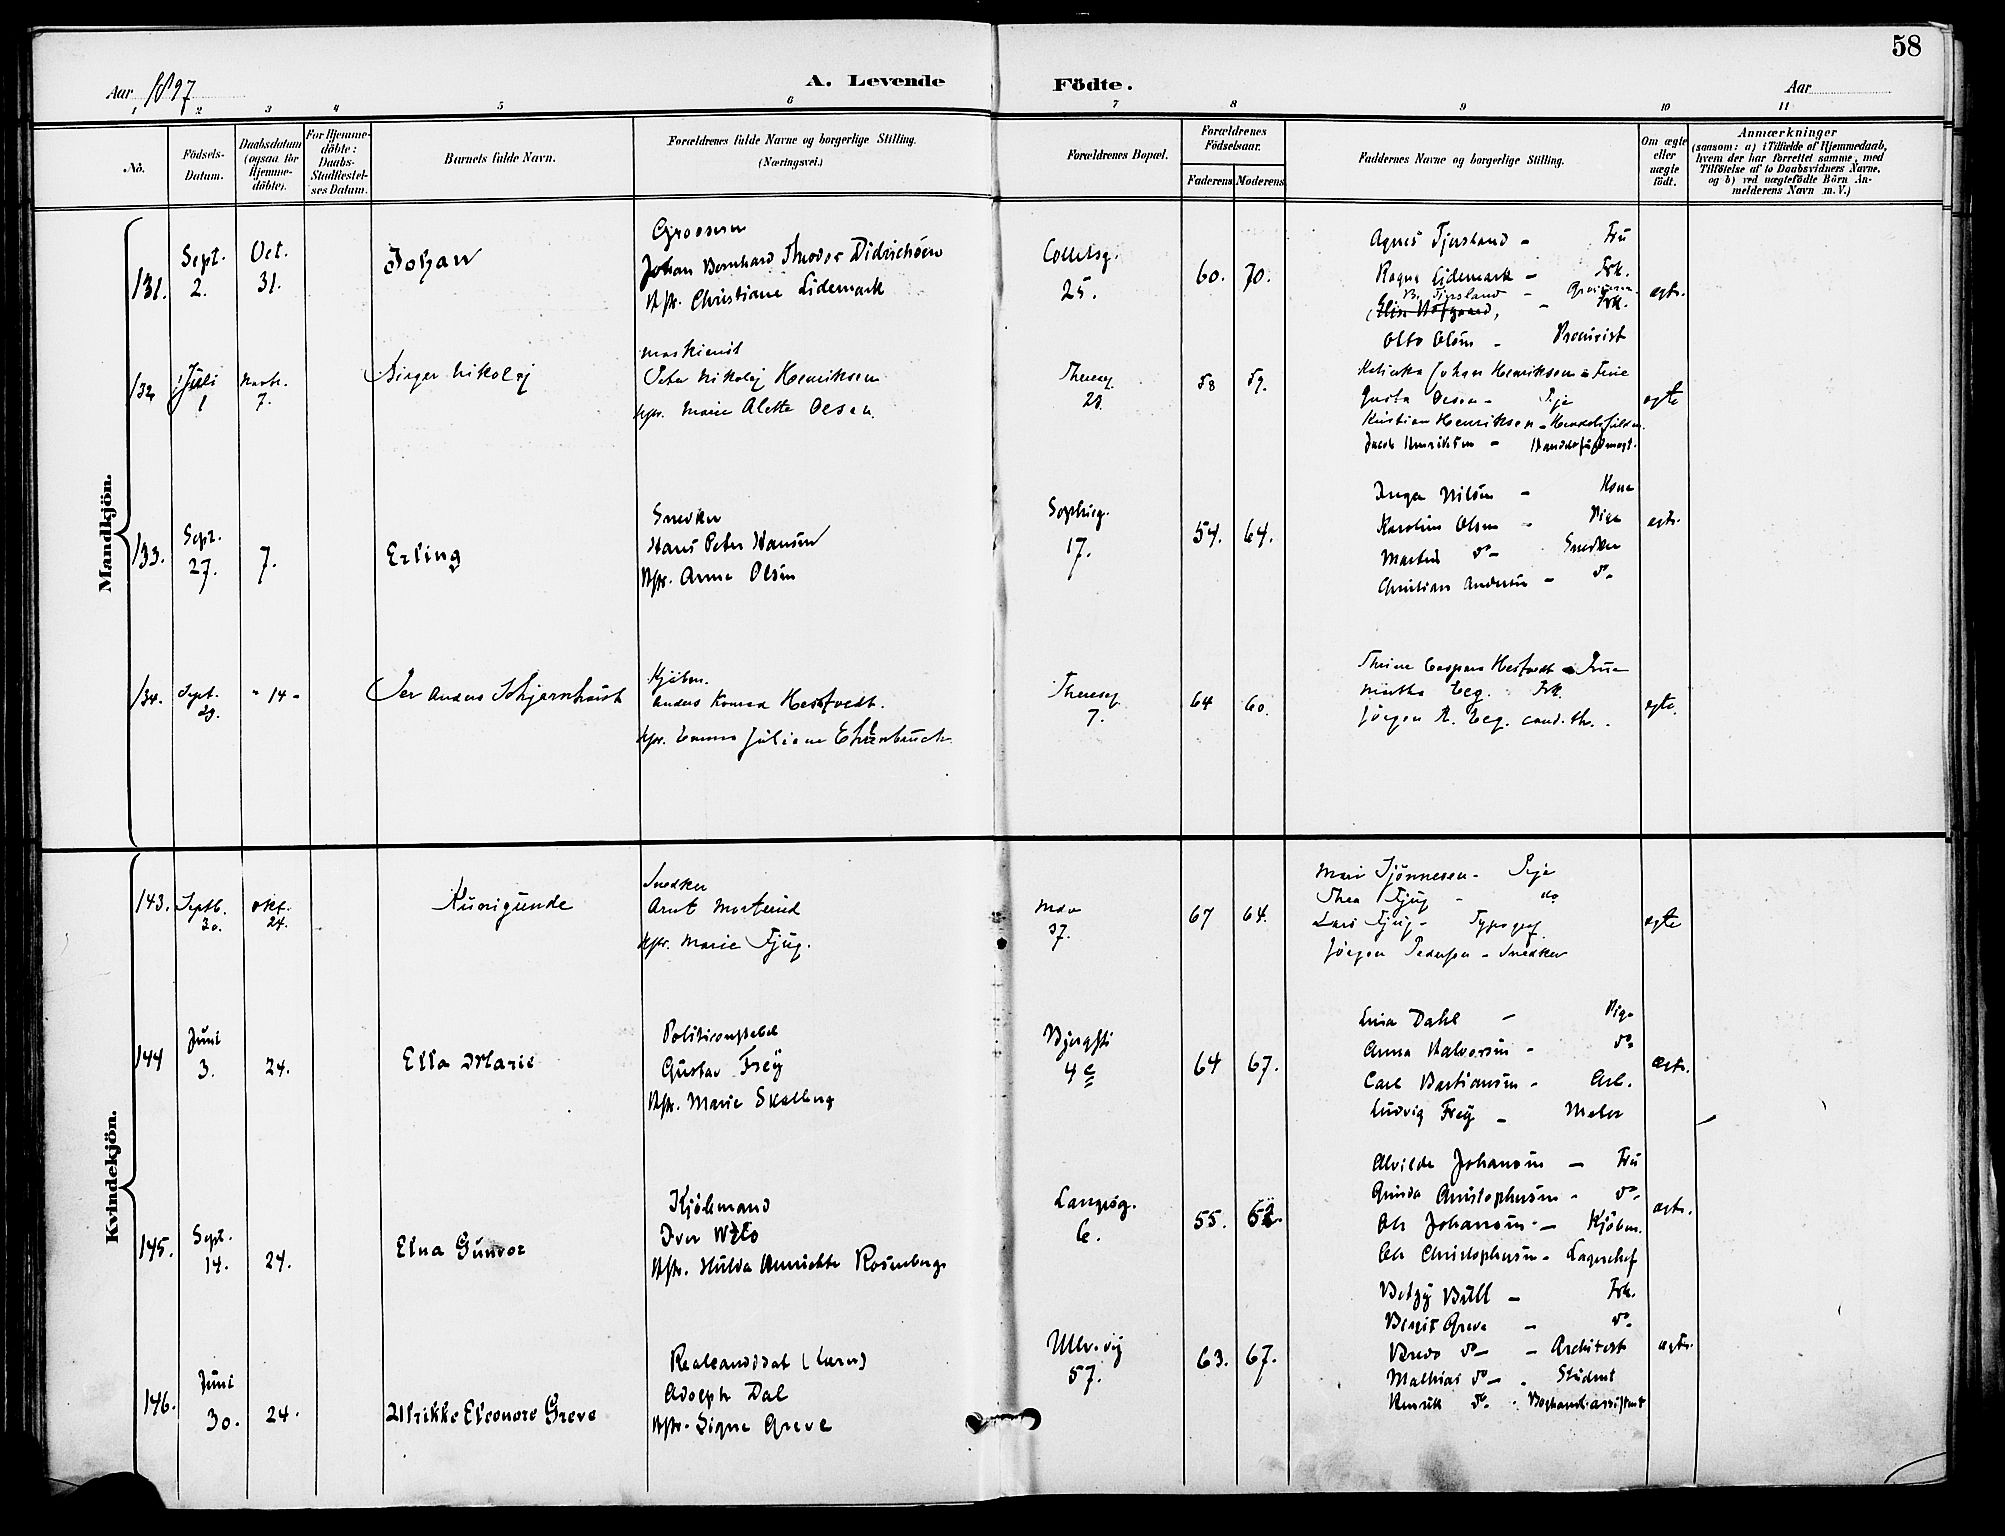 58
Aar 1897
A. Levende Födte.
Aar
1 2 3 4 5 6 7 8 9 10 11
No.
Födsels-
Datum.
Daabsdatum
(ogsaa for
Hjemme-
döbte).
For Hjemme-
döbte:
Daabs-
Stadfæstel-
ses Datum.
Barnets fulde Navn.
Forældrenes fulde Navne og borgerlige Stilling.
(Næringsvei.)
Forældrenes Bopæl.
Forældrenes
Födselsaar.
Faderens Moderens
Faddernes Navne og borgerlige Stilling.
Om ægte
eller
uægte
födt.
Anmærkninger
(saasom: a) i Tilfælde af Hjemmedaab,
hvem der har forrettet samme, med
Tilföielse af to Daabsvidners Navne,
og b) ved uægtefödte Börn An-
melderens Navn m. V.)
Mandkjön.
131.
Sept.
2.
Oct.
31.
Johan
Grosserer
Johan Bernhard Theodor Didrichsen
Hstr. Christiane Lidemark
Colletsg.
25.
60. 70.
Agnes Tjersland - Fru
Ragna Lidemark - Frk.
B. Tjersland - Grosserer
Otto Olsen - Procurist
ægte.
132
Juli
1
Novbr.
7.
Birger Nikolaj
Maskinist
Peter Nikolaj Henriksen
Hstr. Marie Alette Olsen
Thereseg
28.
58 59.
Johan Henriksen - Frue
Gusta Olsen - Pige
Kristian Henriksen
Jacob Henriksen -
ægte
133.
Sept.
27.
7.
Erling
Snedker
Hans Peter Hansen
Hstr. Anna Olsen
Sophieg.
17.
54. 64.
Inga Nilsen - Kone
Karoline Olsen - Pige
Martin do - Snedker
Christian Andersen - do
ægte.
134.
Sept.
29.
" 14 "
Per Anders
Kjøbm.
Anders Konrad Hesstvedt.
Hstr. Emma Juliane Ehrenbusch
Thereseg
7.
64 60.
Hestvedt - Frue
Martha Eeg. Frk.
Jörgen A. Eeg. cand. th.
ægte.
Kvindekjön.
143.
Septb.
30.
Okt.
24.
Kunigunde
Snedker
Arnt Morterud
Hstr. Marie Fjug.
37.
67 64.
Mari Tjønnesen - Pige
Thea Fjug - do
Lars Fjug - Typograf
Jörgen Pedersen - Snedker
ægte
144
Juni
3.
24.
Ella Marie
Politiconstabel
Gustav Frey
Hstr. Marie Skalberg
Bjergsti
4 c
64 67.
Lina Dahl - Pige
Anna Halvorsen - do
Carl Bastiansen - Arb.
Ludvig Frey - Maler
ægte.
145.
Sept.
14.
24.
Elna Gunvor
Kjøbmand
Iver Welo
Hstr. Hulda Henriette Rosenberg
Langesg.
6.
55. 62.
Alvilde Johansen - Fru
Gunda Christophersen - do
Ole Johansen - Kjøbm.
Ole Christophersen - Lagerchef
ægte.
146.
Juni
30.
24.
Ulrikke Eleonore Greve
Realcandidat (Lærer)
Adolph Dal
Hstr. Signe Greve
Ullev. vei
57.
63. 67.
Betzy Bull - Frk.
Bergit Greve - do
Bredo do - Architect
Mathias do - Student
Henrik do - Boghandl.assistent
ægte.